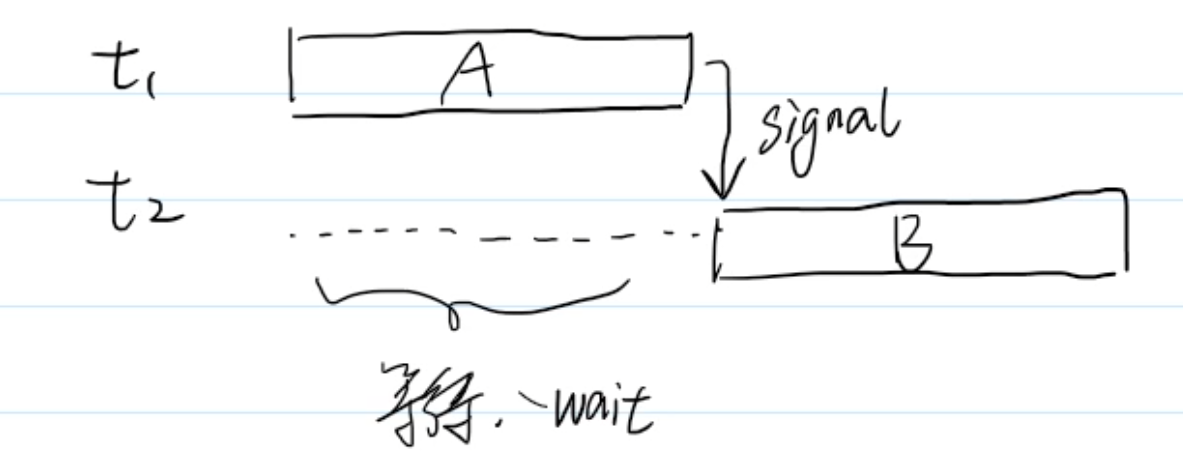 t₁ A
signal
t₂ B
等待. wait